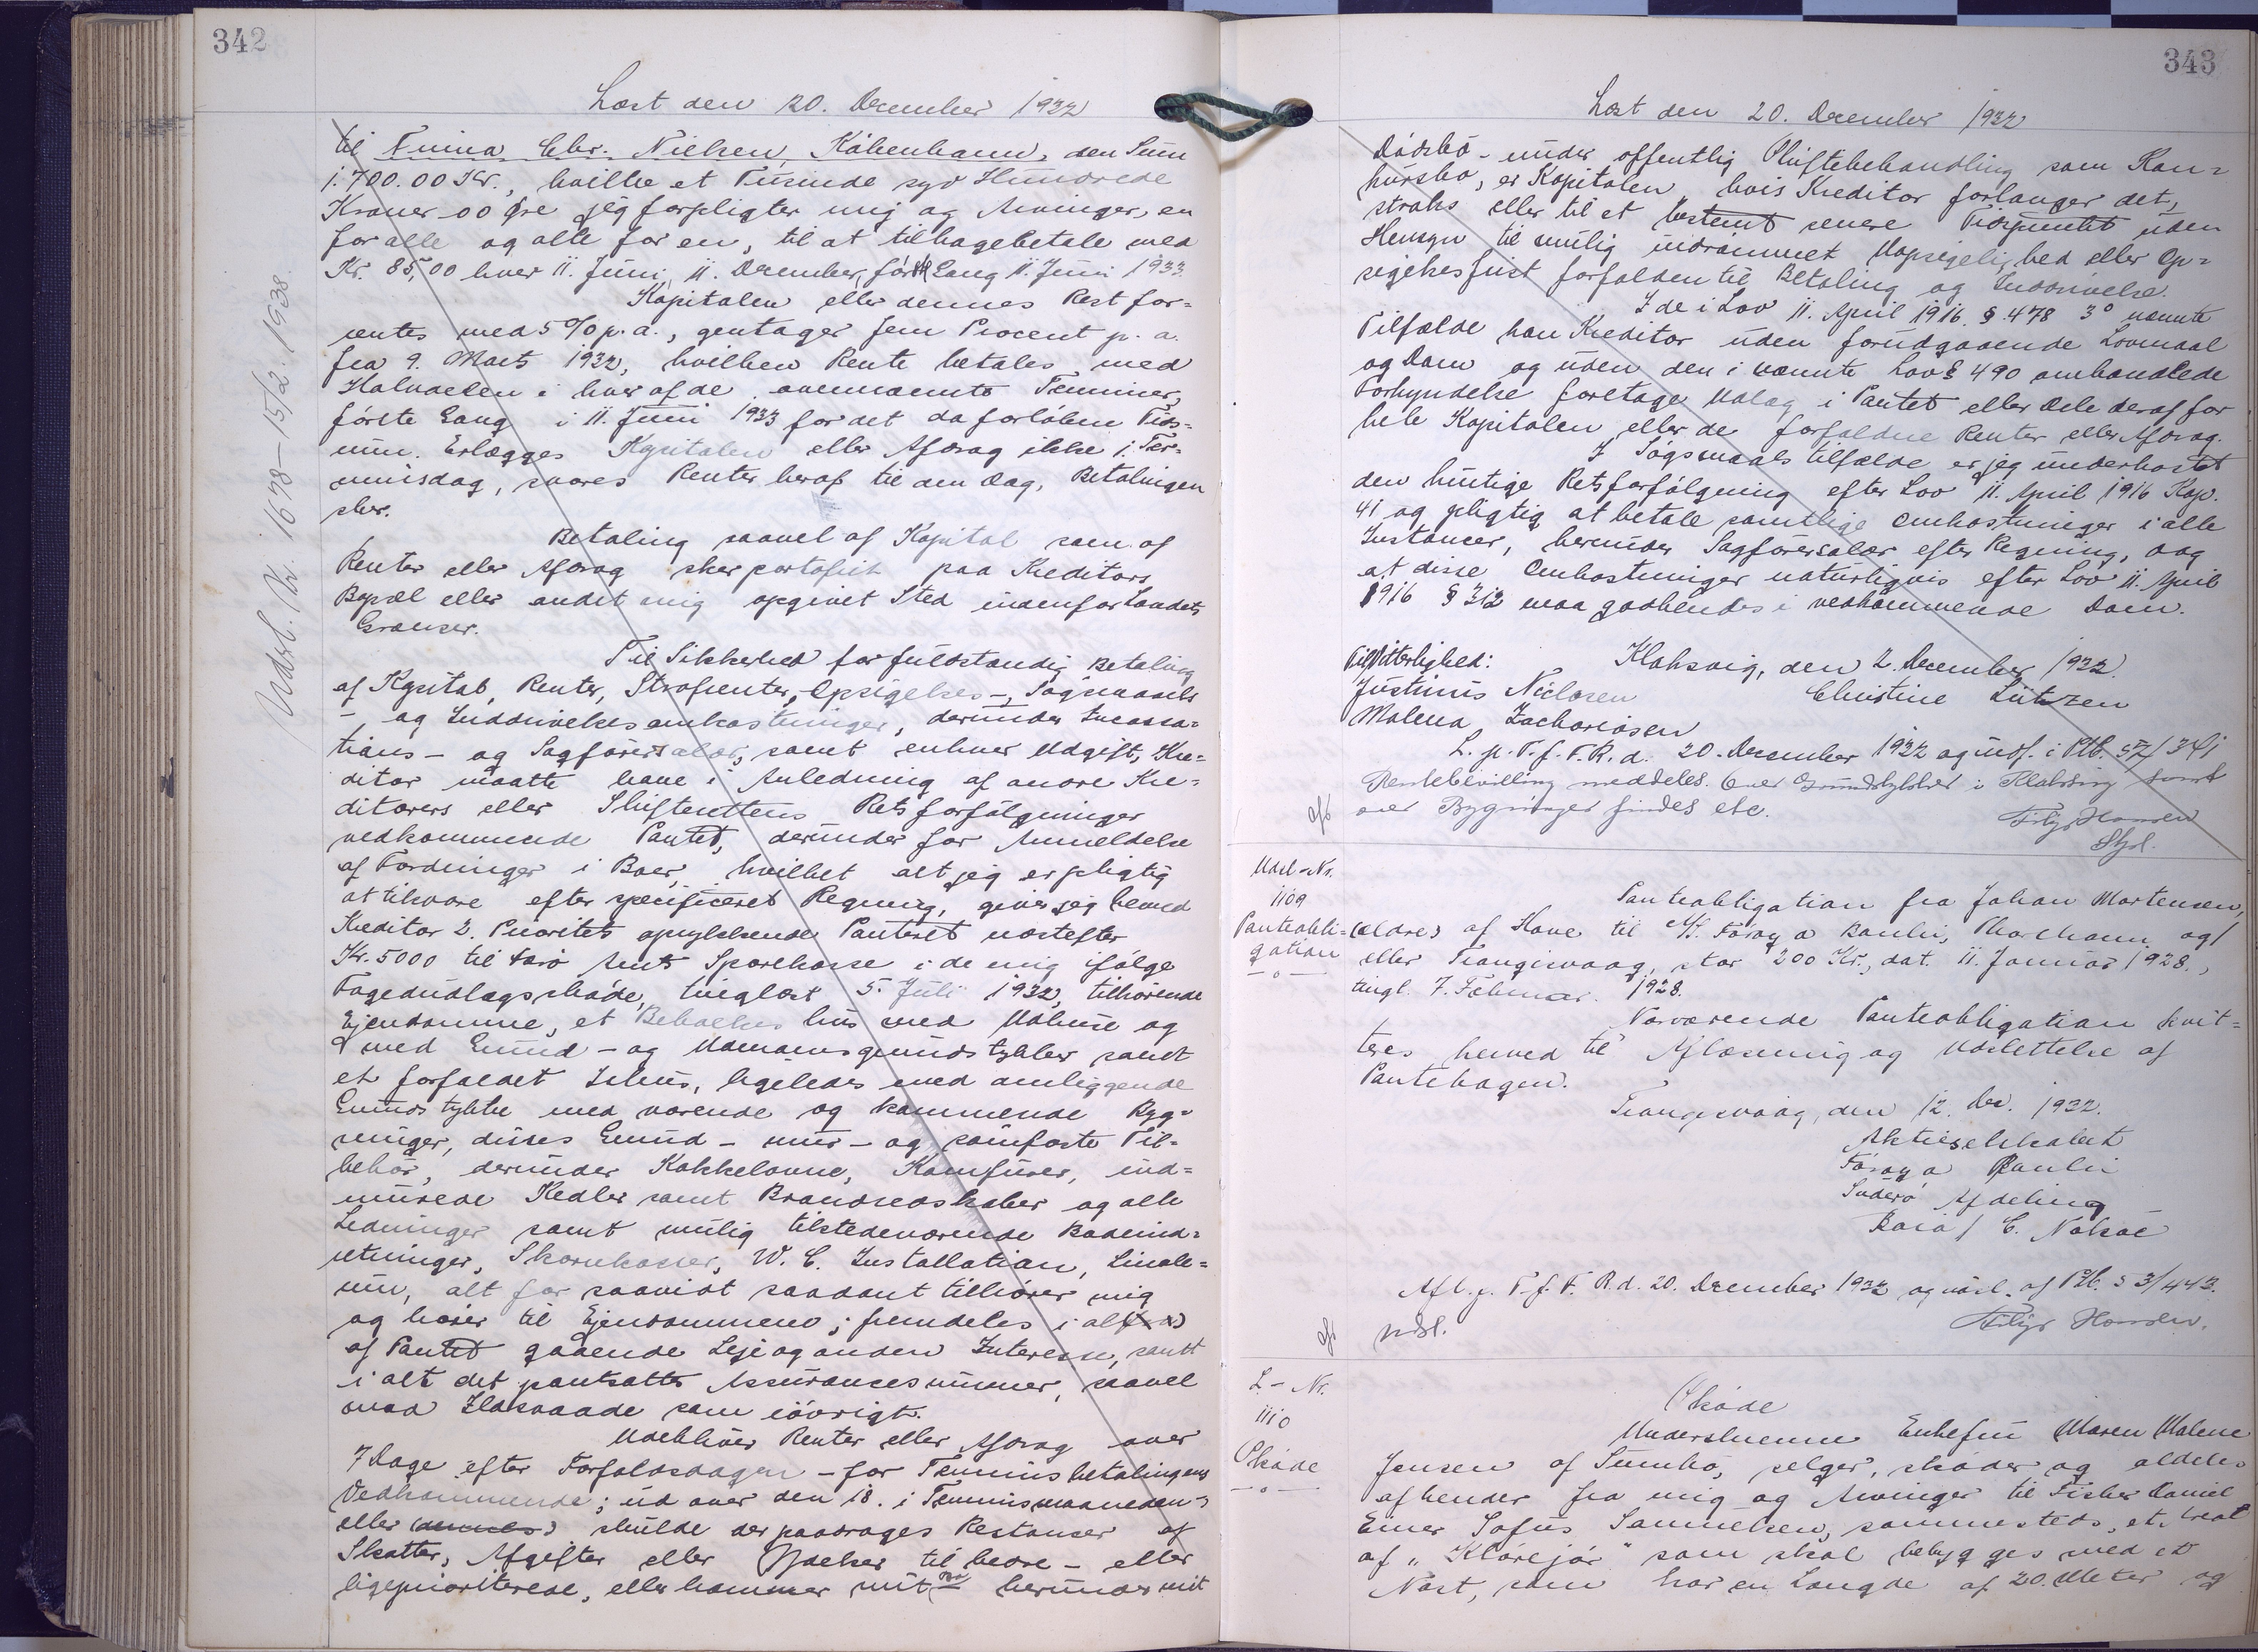 342
Læst den 20. December 1932
til Fuina Chr. Nielsen, København, den Sum
1.700.00 Kr., hvilke et Tusinde syv Hundrede
Kroner 00 Øre jeg forpligter mig og Arvinger, en
for alle og alle for en, til at tilbagebetale med
Kr. 85,00 hver 11. Juni, 11. December, første Gang 11. Juni 1933.
Kapitalen eller dennes Rest for-
rentes med 5 % p. a., gentager fem Procent p. a.
fra 9. Marts 1932, hvilken Rente betales med
Halvdelen i hver af de ovennævnte Terminer,
første Gang i 11. Juni 1933 for det da forløbne Tids-
rum. Erlægges Kapitalen eller Afdrag ikke i Ter-
minsdag, svares Renter heraf til den Dag, Betalingen
sker.
Betaling saavel af Kapital som af
Renter eller Afdrag sker portofrit paa Kreditors
Bopæl eller andet mig opgivet Sted indenfor Landets
Grænser.
Til Sikkerhed for fuldstændig Betaling
af Kapital, Renter, Strafrenter, Opsigelses-, Søgsmaals
-, og Inddrivelsesomkostninger, derunder Incassa-
tions- og Sagførersalær, samt enhver Udgift, Kre-
ditor maatte have i Anledning af andre Kre-
ditorers eller Skifterettens Retsforfølgninger
vedkommende Pantet, derunder for Anmeldelse
af Fordringer i Boer, hvilket alt jeg er pligtig
at tilsvare efter specificeret Regning, giver jeg herved
Kreditor 2. Prioritets oprykkende Panteret næstefter
Kr. 5000 til Færø Amts Sparekasse i de mig ifølge
Fogedudlægsskøde, tinglæst 5. Juli 1932, tilhørende
Ejendomme, et Beboelseshus med Udhuse og
med Grund- og Udenomsgrundstykker samt
et forfaldet Ishus, ligeledes med omliggende
Grundstykke med værende og kommende Byg-
ninger, disses Grund- mur- og sømfaste Til-
behør, derunder Kakkelovne, Komfurer, ind-
murede Kedler samt Brandredskaber og alle
Ledninger samt mulig tilstedeværende Badeind-
retninger, Skarnkasser, W. C. Installation, Linole-
um, alt for saavidt saadant tilhører mig
og hører til Ejendommene; fremdeles i al
af Pantet gaaende Leje og anden Interesse, samt
i alt det pantsattes Assurancesummer, saavel
mod Ildsvaade som iøvrigt.
Udebliver Renter eller Afdrag over
7 Dage efter Forfaldsdagen - for Terminsbetalingens
Vedkommende; ud over den 18. i Terminsmaaneden -
eller skulde der paadrages Restancer af
Skatter, Afgifter eller Ydelser til bedre - eller
ligeprioriterede, eller kommer mit Bo - herunder mit
Udsl. Nr. 1678 - 15/2. 1938.
343
Læst den 20. December 1932
Dødsbo - under offentlig Skiftebehandling som Kon-
kursbo, er Kapitalen, hvis Kreditor forlanger det,
straks eller til et bestemt senere Tidspunkt uden
Hensyn til mulig indrømmet Uopsigelighed eller Op-
sigelsesfrist forfalden til Betaling og Inddrivelse.
I de i Lov 11. April 1916 § 478 3° nævnte
Tilfælde kan Kreditor uden forudgaaende Lovmaal
og Dom og uden den i nævnte Lov § 490 omhandlede
Forkyndelse foretage Udlæg i Pantet eller Dele deraf for
hele Kapitalen eller de forfaldne Renter eller Afdrag.
I Søgsmaalstilfælde er jeg underkastet
den hurtige Retsforfølgning efter Lov 11. April 1916 Kap.
41 og pligtig at betale samtlige Omkostninger i alle
Instancer, herunder Sagførersalær efter Regning, dog
at disse Omkostninger naturligvis efter Lov 11. April
1916 § 312 maa godkendes i vedkommende Dom.
Til Vitterlighed: Klaksvig, den 2. December 1932.
Justinus Niclasen Christine Lützen
Malena Zachariasen
L. p. T. f. F. R. d. 20. December 1932 og indf. i Ptb. 57/341
Rentebevilling meddeles. Over Grundstykker i Klaksvig samt
over Bygninger findes etc.
Filip Hansen
Styl.
Udsl-Nr.
1109
Panteobli-
gation
Panteobligation fra Johan Mortensen,
(ældre) af Hove til A/S. Føroya Banki, Thorshavn og/
eller Trangisvaag, stor 200 Kr., dat. 11. Januar 1928,
tingl. 7. Februar 1928.
Nærværende Panteobligation kvit-
teres herved til Aflæsning og Udslettelse af
Pantebogen.
Trangisvaag, den 12. Dec. 1932.
Aktieselskabet
Føroya Banki
Suderø Afdeling
C. Nolsøe
Afl. p. T. f. F. R. d. 20. December 1932 og udsl. af Ptb. 53/443.
Filip Hansen.
L - Nr.
1110
Skøde
Skøde
Underskrevne Enkefru Maren Malene
Jensen af Sumbø, sælger, skøder og aldeles
afhender fra mig og Arvinger til Fisker Daniel
Einer Sofus Samuelsen, sammesteds, et Areal
af " " som skal bebygges med et
Nøst, som har en Længde af 20. Meter og